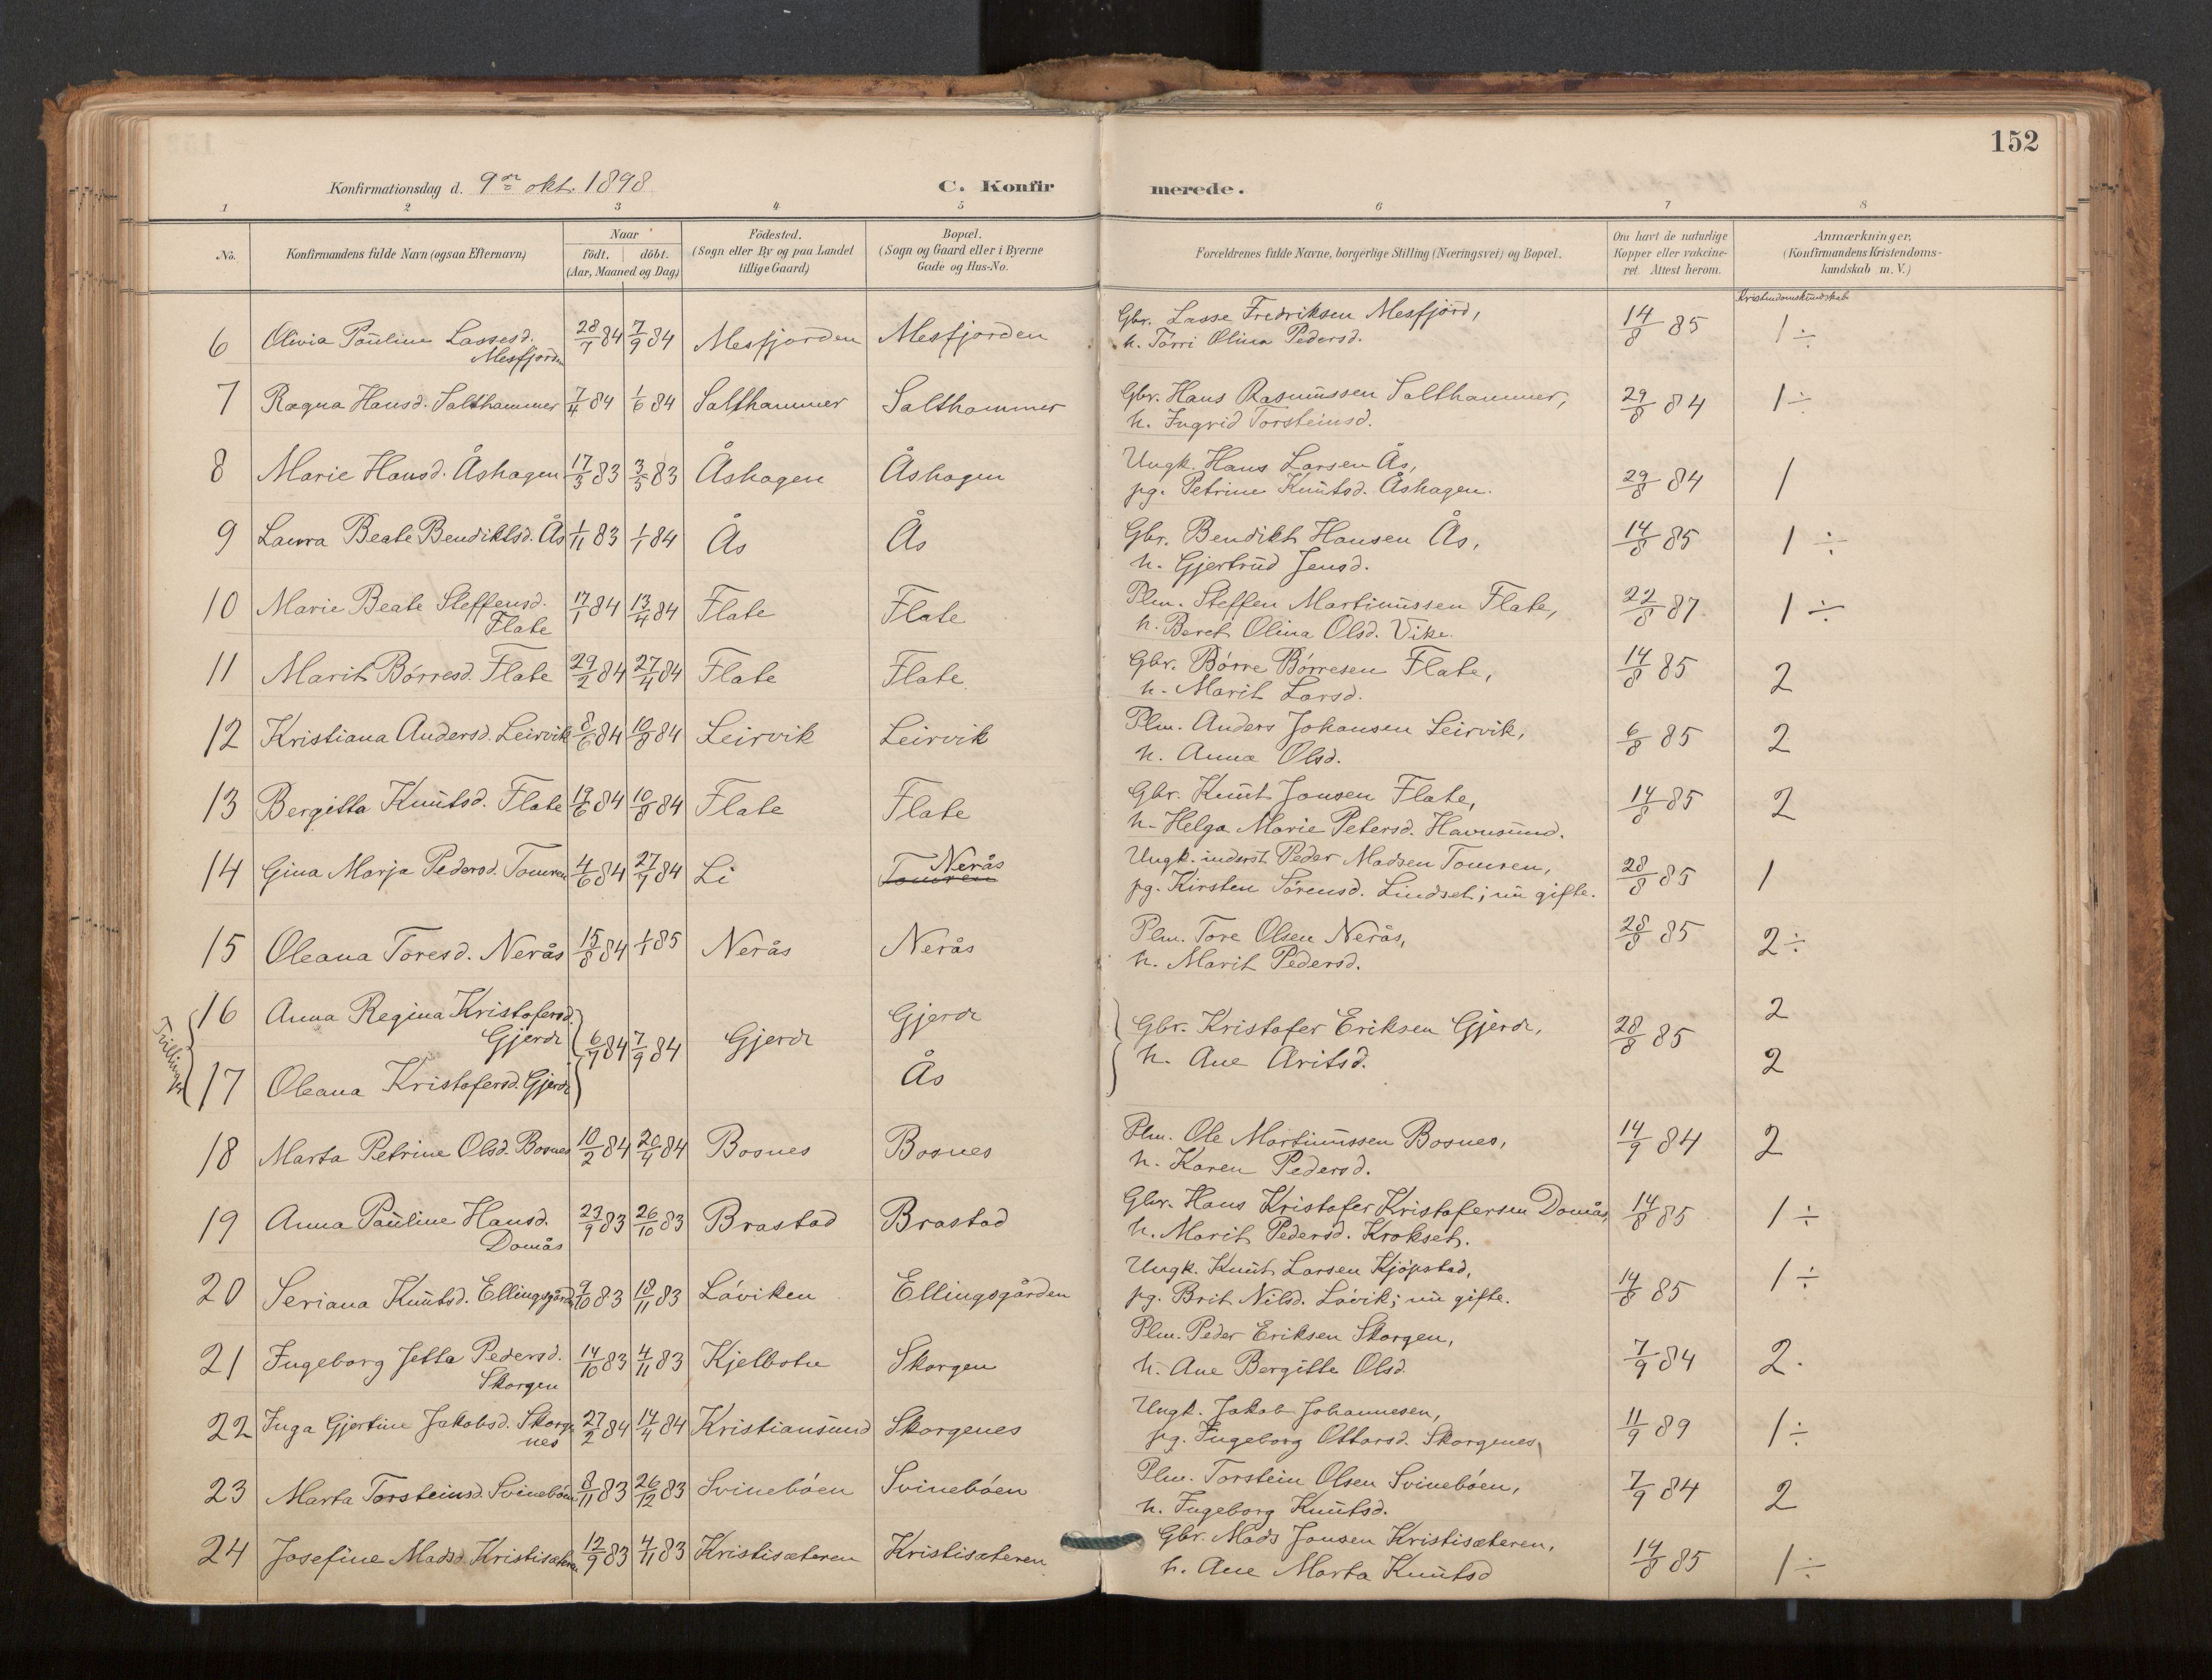 152
Konfirmationsdag d. 9de okt. 1898
C. Konfirmerede.
1 2 3 4 5 6 7 8
No.
Konfirmandens fulde Navn (ogsaa Efternavn)
Naar
födt. döbt.
(Aar, Maaned og Dag)
Födested.
(Sogn eller By og paa Landet
tillige Gaard)
Bopæl.
(Sogn og Gaard eller i Byerne
Gade og Hus-No.
Forældrenes fulde Navne, borgerlige Stilling (Næringsvei) og Bopæl.
Om havt de naturlige
Kopper eller vakcine-
ret. Attest herom.
Anmærkninger,
(Konfirmandens Kristendoms-
kundskab m. V.)
Kristendomskundskab
6 Olivia Pauline Lassesd. 28/7 84 7/9 84 Mesfjorden Mesfjorden Gbr. Lasse Fredriksen Mesfjord, 14/8 85 1÷
Mesfjorden h. Törri Olina Pedersd.
7 Ragna Hansd. Salthammer 7/4 84 1/6 84 Salthammer Salthammer Gbr. Hans Rasmussen Salthammer, 29/8 84 1÷
h. Ingrid Torsteinsd.
8 Marie Hansd. Åshagen 17/3 83 3/5 83 Åshagen Åshagen Ungk. Hans Larsen Ås, 29/8 84 1
pg. Petrine Knutsd. Åshagen.
9 Laura Beate Bendiktsd. Ås 1/11 83 1/1 84 Ås Ås Gbr. Bendikt Hansen Ås, 14/8 85 1÷
h. Gjertrud Jensd.
10 Marie Beate Steffensd. 17/1 84 13/4 84 Flate Flate Plm. Steffen Martinussen Flate, 22/8 87. 1÷
Flate h. Beret Olina Olsd. Vike.
11 Marit Börresd. Flate 29/2 84 27/4 84 Flate Flate Gbr. Börre Börresen Flate, 14/8 85 2
h. Marit Larsd.
12 Kristiana Andersd. Leirvik 8/6 84 10/8 84 Leirvik Leirvik Plm. Anders Johansen Leirvik, 6/8 85 2
h. Anna Olsd.
13 Bergitta Knutsd. Flate 19/6 84 10/8 84 Flate Flate Gbr. Knut Jonsen Flate, 14/8 85 2
h. Helga Marie Petersd. Havnsund.
14 Gina Marja Pedersd. Tomren 4/6 84 27/7 84 Li Tomren Nerås Ungk. inderst Peder Madsen Tomren, 28/8 85 1
pg. Kirsten Sörensd. Lindset; nu gifte.
15 Oleana Toresd. Nerås 15/8 84 1/1 85 Nerås Nerås Plm. Tore Olsen Nerås, 28/8 85 2÷
h. Marit Pedersd.
Tvillinger
16 Anna Regina Kristofersd. Gjerde 2
Gjerde 6/7 84 7/9 84 Gjerde Gbr. Kristofer Eriksen Gjerde, 28/8 85
17 Oleana Kristofersd. Gjerde Ås h. Ane Aritsd. 2
18 Marta Petrine Olsd. Bosnes 10/2 84 20/4 84 Bosnes Bosnes Plm. Ole Martinussen Bosnes, 14/9 84 2
h. Karen Pedersd.
19 Anna Pauline Hansd. 23/9 83 26/10 83 Brastad Brastad Gbr. Hans Kristofer Kristofersen Domås, 14/8 85 1÷
Domås h. Marit Pedersd. Krokset.
20 Seriana Knutsd. Ellingsgården 9/10 83 18/11 83 Löviken Ellingsgården Ungk. Knut Larsen Kjöpstad, 14/8 85 1÷
pg. Brit Nilsd. Lövik; nu gifte.
21 Ingeborg Jetta Pedersd. 14/10 83 4/11 83 Kjelbotn Skorgen Plm. Peder Eriksen Skorgen, 7/9 84 2.
Skorgen h. Ane Bergitte Olsd.
22 Inga Gjertine Jakobsd. Skorge 27/2 84 14/4 84 Kristiansund Skorgenes Ungk. Jakob Johannesen, 11/9 89 1÷
nes pg. Ingeborg Ottarsd. Skorgenes
23 Marta Torsteinsd. Svineböen 8/11 83 26/12 83 Svineböen Svineböen Plm. Torstein Olsen Svineböen, 7/9 84 2
h. Ingeborg Knutsd.
24 Josefine Madsd. Kristisæteren 12/9 83 4/11 83 Kristisæteren Kristisæteren Gbr. Mads Jonsen Kristisæteren, 14/8 85 1÷
h. Ane Marta Knutsd